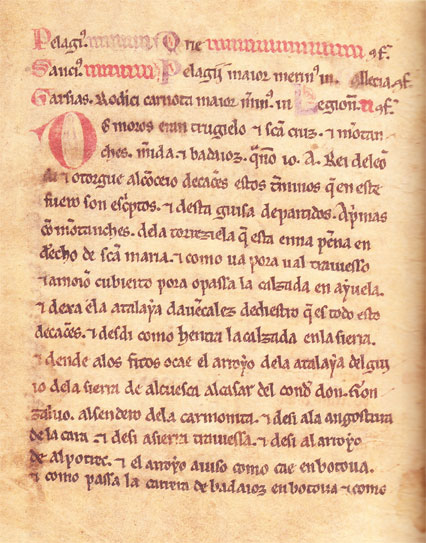 Pelagiꝰ Orie ⁊ cf̄.
Sanciꝰ Pelagij maior merinꝰ in Gallecia ⁊ cf̄.
Garsias. Rodici carnota maior m̄inꝰ in Legion̄. ⁊ cf̄.
Os moros eran trugielo ⁊ sc̄a cruz. ⁊ mōtan
ches. m̄ida. ⁊ badaioz. q̄no io. A. Rei delcō
do ⁊ otorgue alcōceio decac̄es estos t̄minos q̄ en este
fuero son esc̄ptos. ⁊ desta guisa departidos. Ap̄mas
cōmōtanches. dela torreziela q̄ esta enna pēna en
d̄recho de sc̄a maria. ⁊ como ua pora ual trauiesso
⁊ amoiō cubierto pora o passa la calzada en ayuela.
⁊ dexa ela atalaya dauēcalez dechestro q̄ es todo esto
decac̄es. ⁊ desdi como hentra la calzada en la sierra.
⁊ dende alos fitos o cae el arroyo dela atalaya del gui
io dela sierra de alcuesca alcasar del cond̄ don. Gon
zaluo. al sendero dela carmonita. ⁊ desi ala angostura
de la cara ⁊ desi asierra trauiessa. ⁊ desi al arroyo
de alpotrec. ⁊ el arroyo aiuso como cae en botoua.
⁊ como passa la carrera de badaioz en botoua ⁊ como